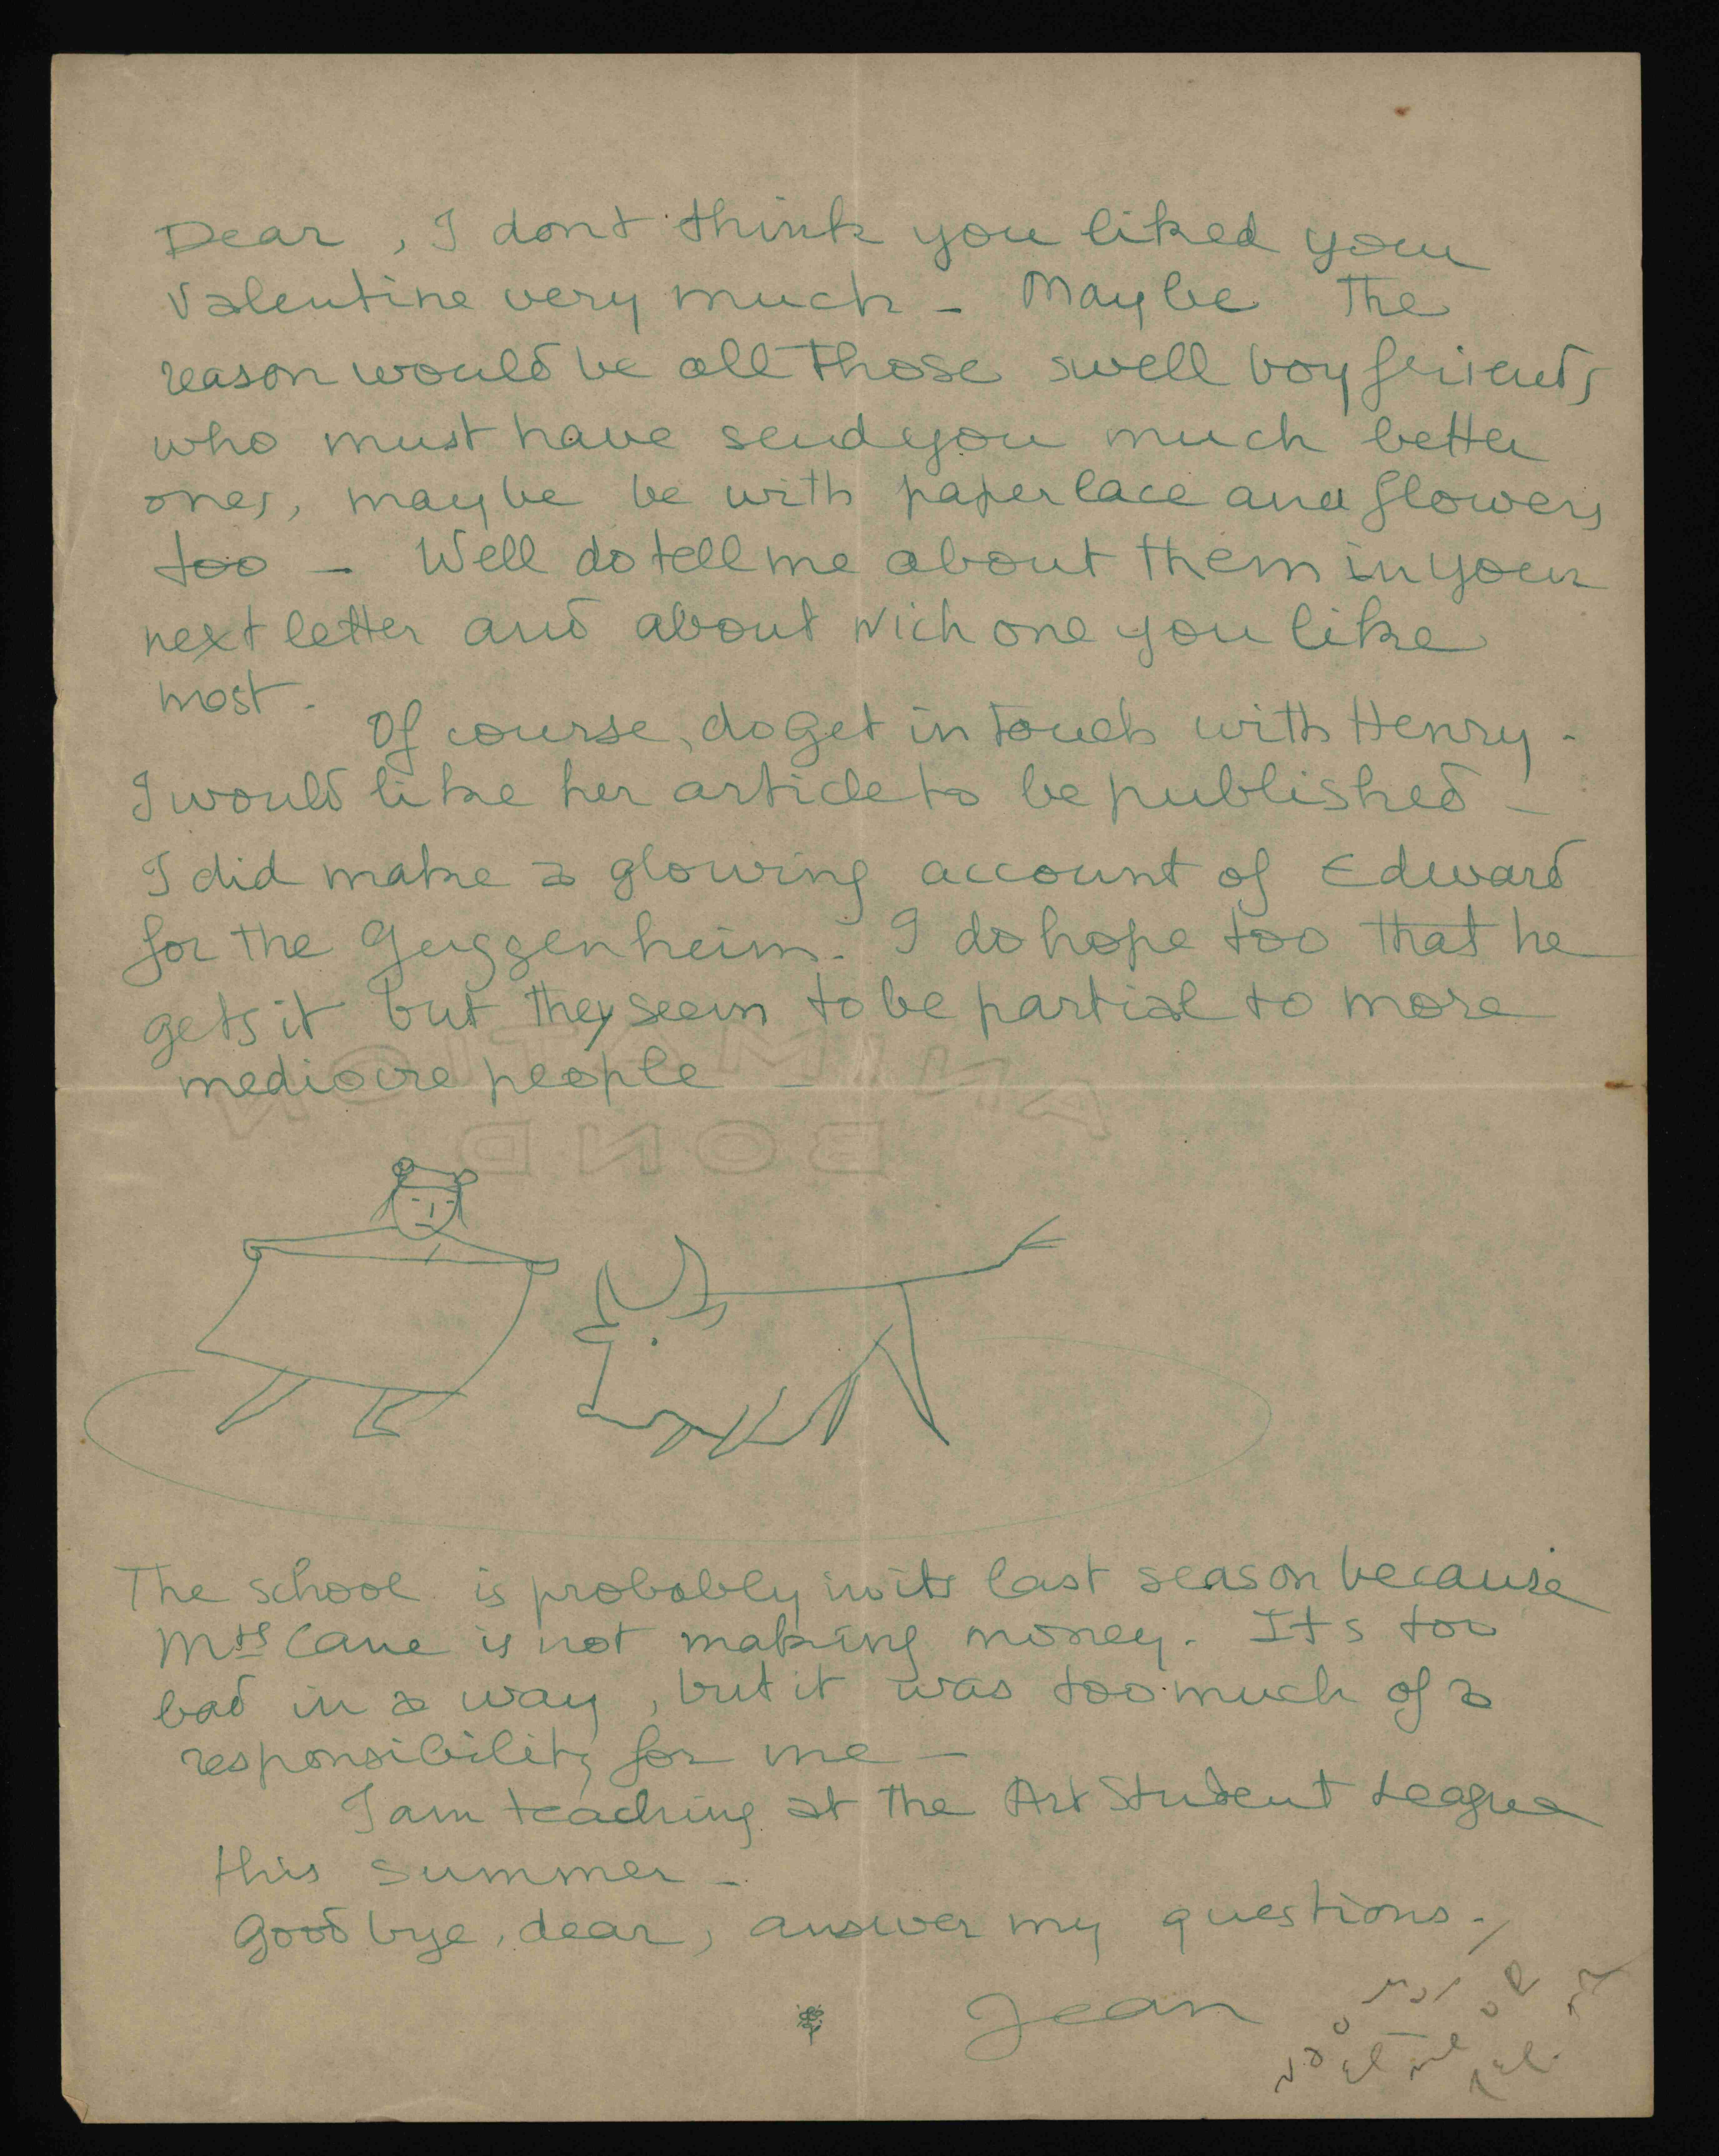 Dear , I dont think you liked your
Valentine very much - Maybe The
reason would be all those swell boy friends
who must have send you much better
ones, maybe be with paper lace and flowers
too - Well do tell me about them in your
next letter and about wich one you like
most.
Of course, do get in touch with Henry -
I would like her article to be published -
I did make a glowing account of Edward
for the Guggenheim. I do hope too that he
gets it but they seem to be partial to more
mediocre people -
ANIMATION
BOND
The school is probably in its last season because
Mrs Cane is not making money. Its too
bad in a way , but it was too much of a
responsibility for me -
I am teaching at the Art Student League
this summer -
Good bye, dear, answer my questions.
Jean